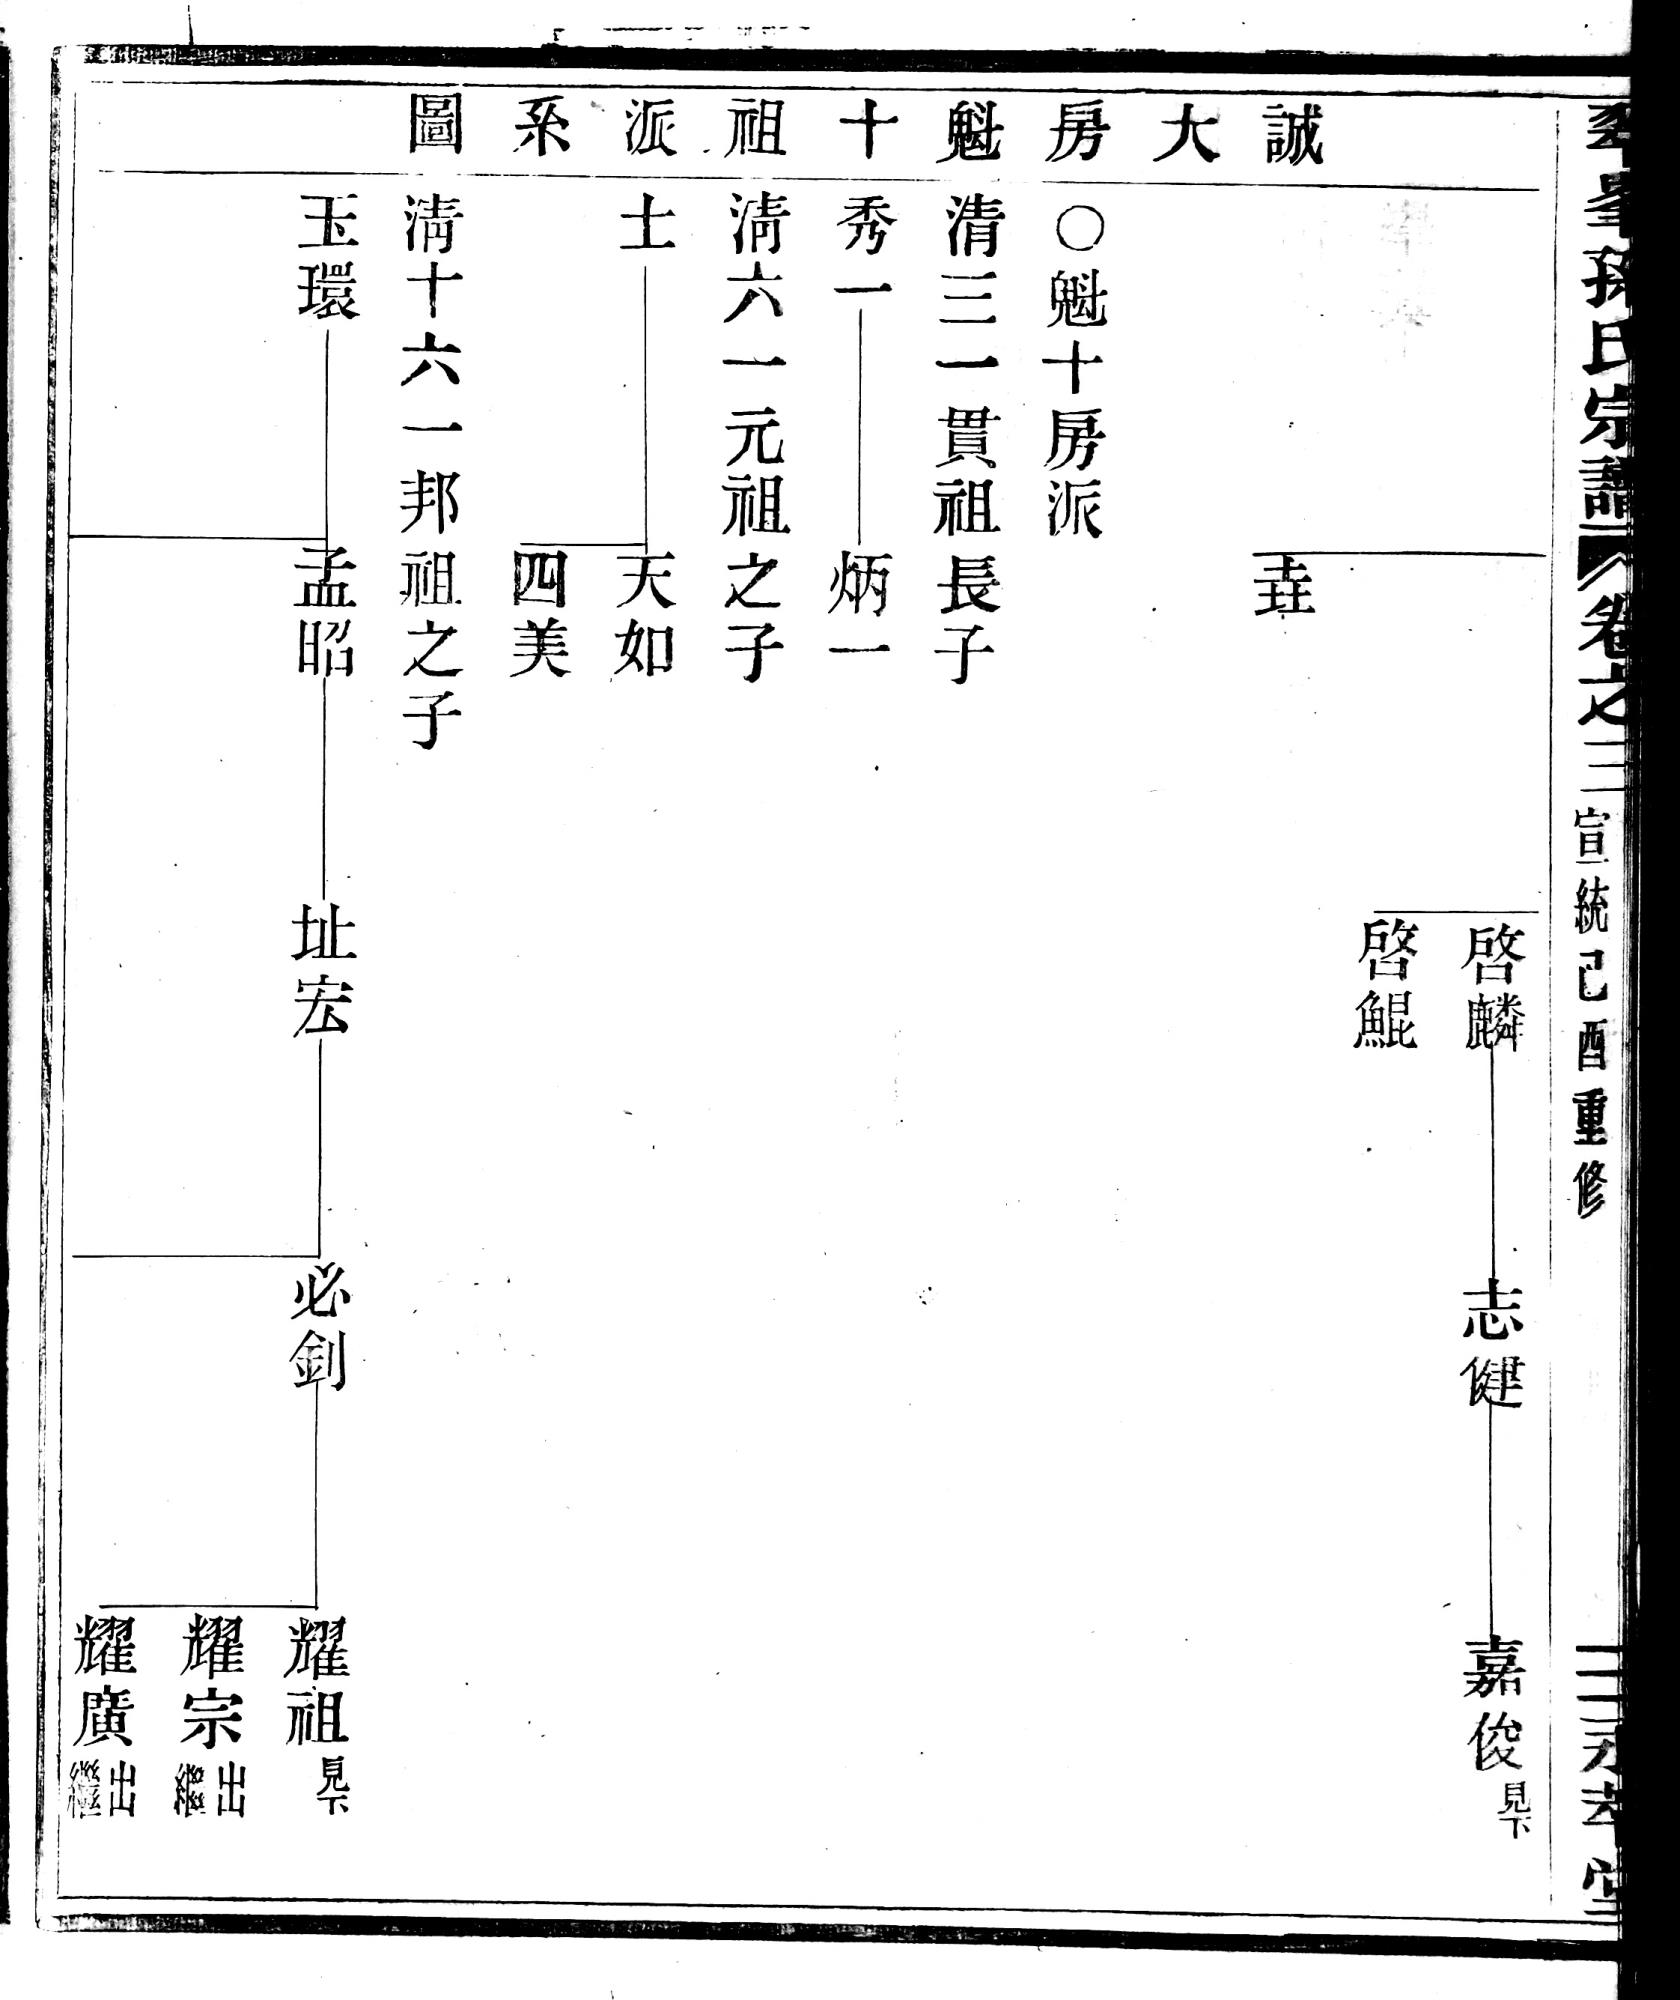 峯孫氏宗譜
卷之三
宣統己酉重修
堂
誠大房魁十祖派系圖
啓麟
志健
嘉俊
見下
啓鯤
垚
〇魁十房派
清三一貫祖長子
秀一
炳一
清六一元祖之子
士
天如
四美
清十六一邦祖之子
玉環
孟昭
址宏
必釗
耀祖
見下
耀宗
出繼
耀廣
出繼